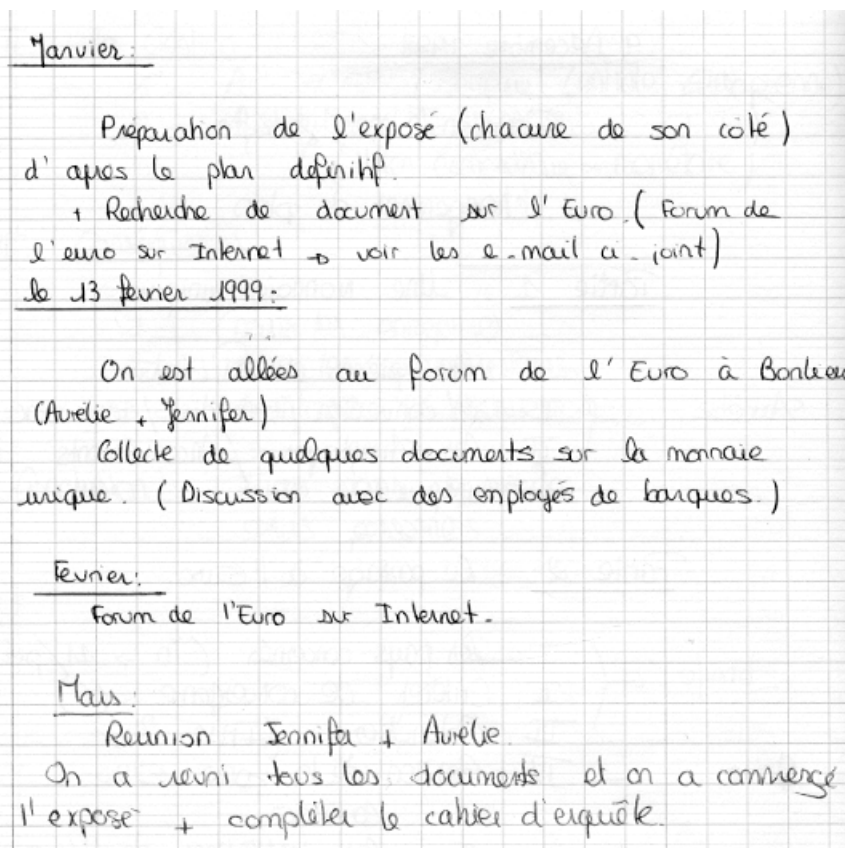 Janvier:
Préparation de l'exposé (chacune de son côté)
d'apres le plan definitif.
+ Recherche de document sur l'Euro. (Forum de
l'euro sur Internet → voir les e-mail ci-joint)
le 13 fevrier 1999:
On est allées au forum de l'Euro à
(Aurélie + Jennifer)
Collecte de quelques documents sur la monnaie
unique. (Discussion avec des employés de banques.)
Fevrier:
Forum de l'Euro sur Internet.
Mars:
Reunion Jennifer + Aurélie.
On a reuni tous les documents et on a commencé
l'exposé + compléter le cahier d'enquête.